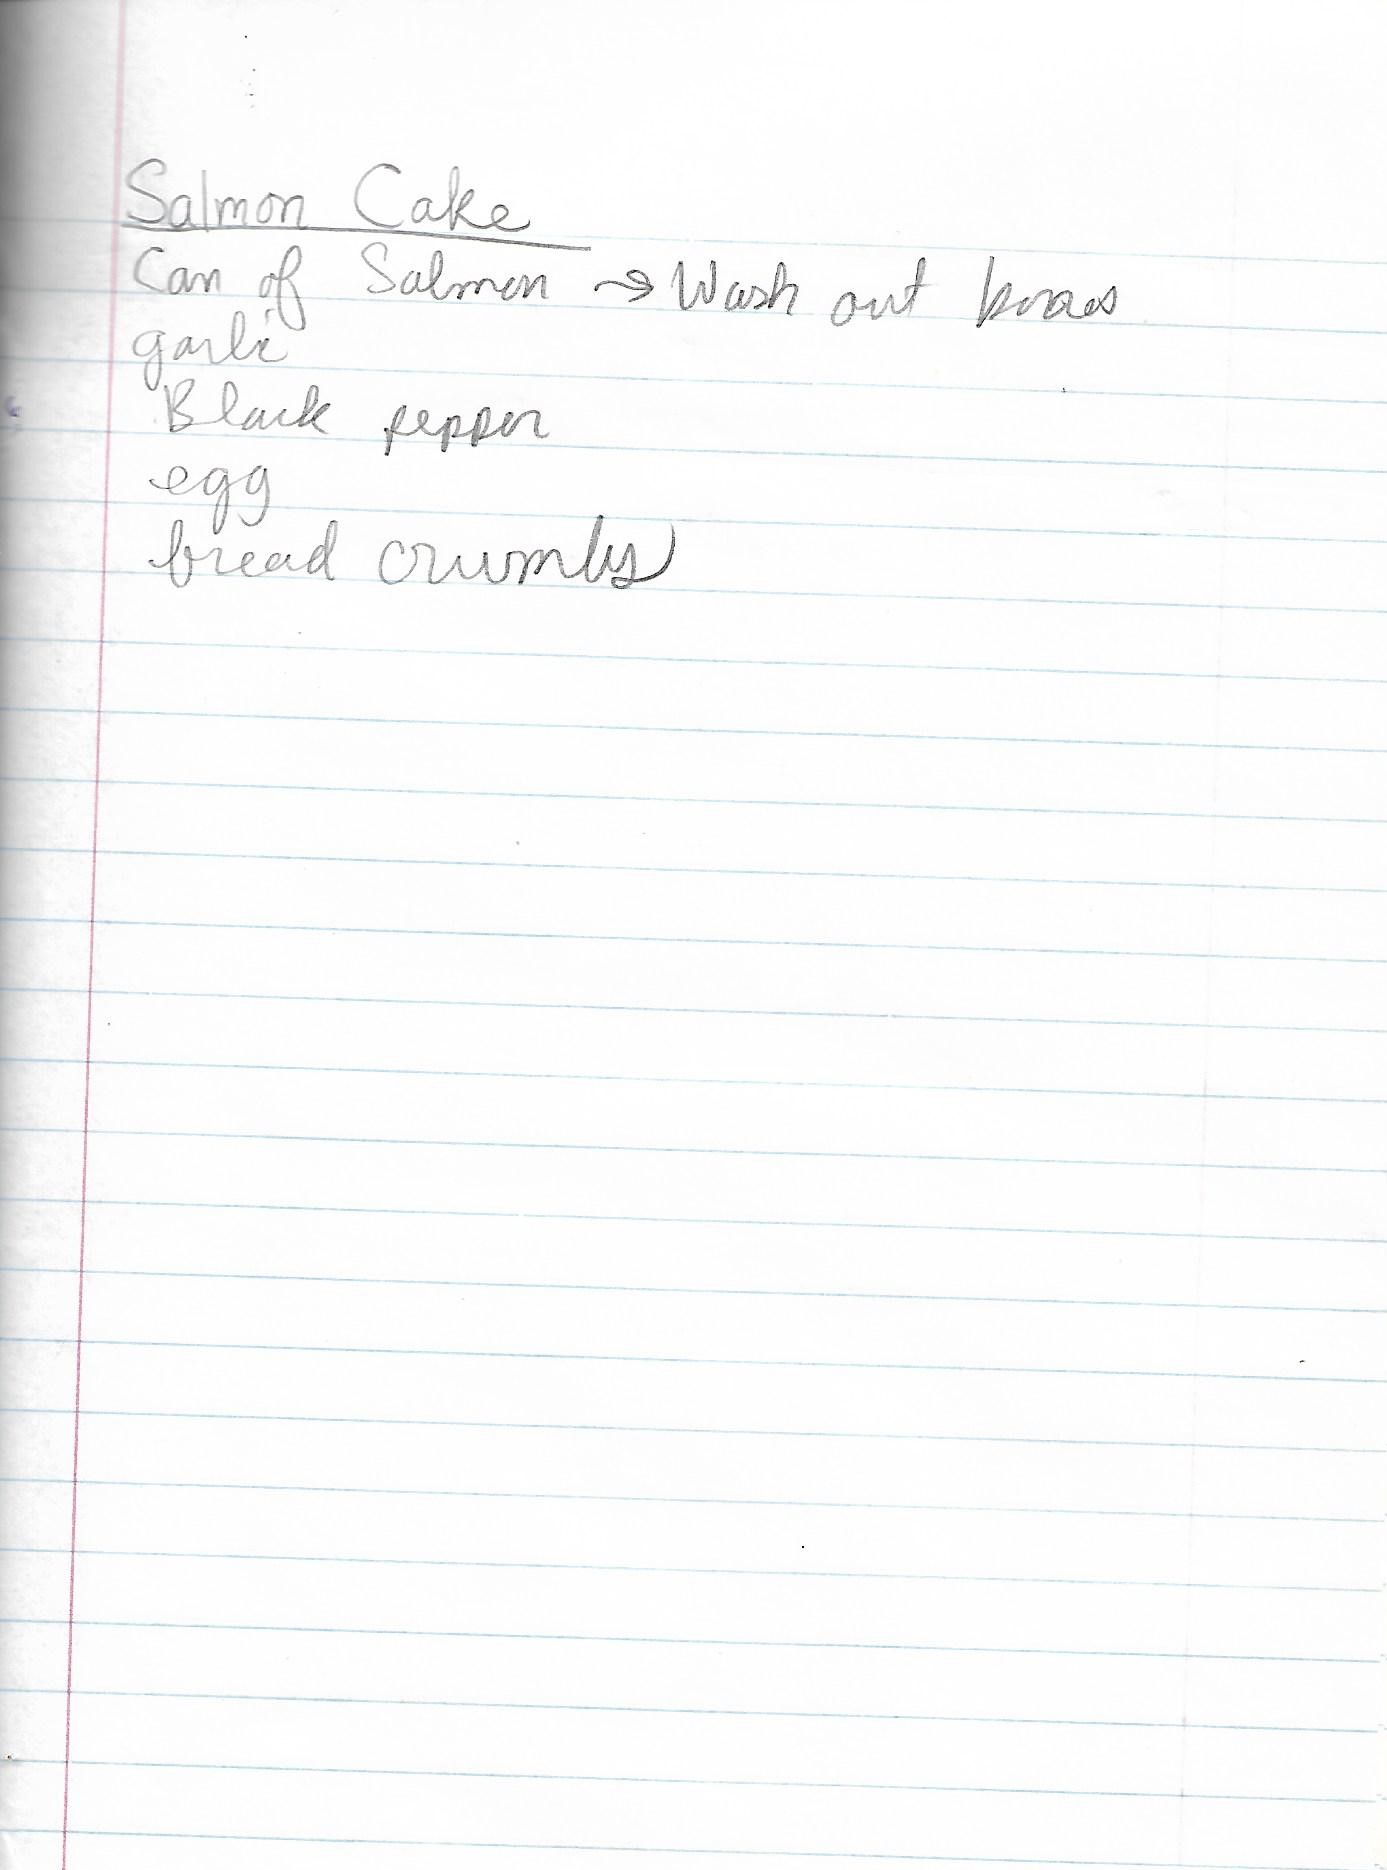 Salmon Cake
Can of Salmon → Wash out bones
garlic
Black pepper
egg
bread crumbs